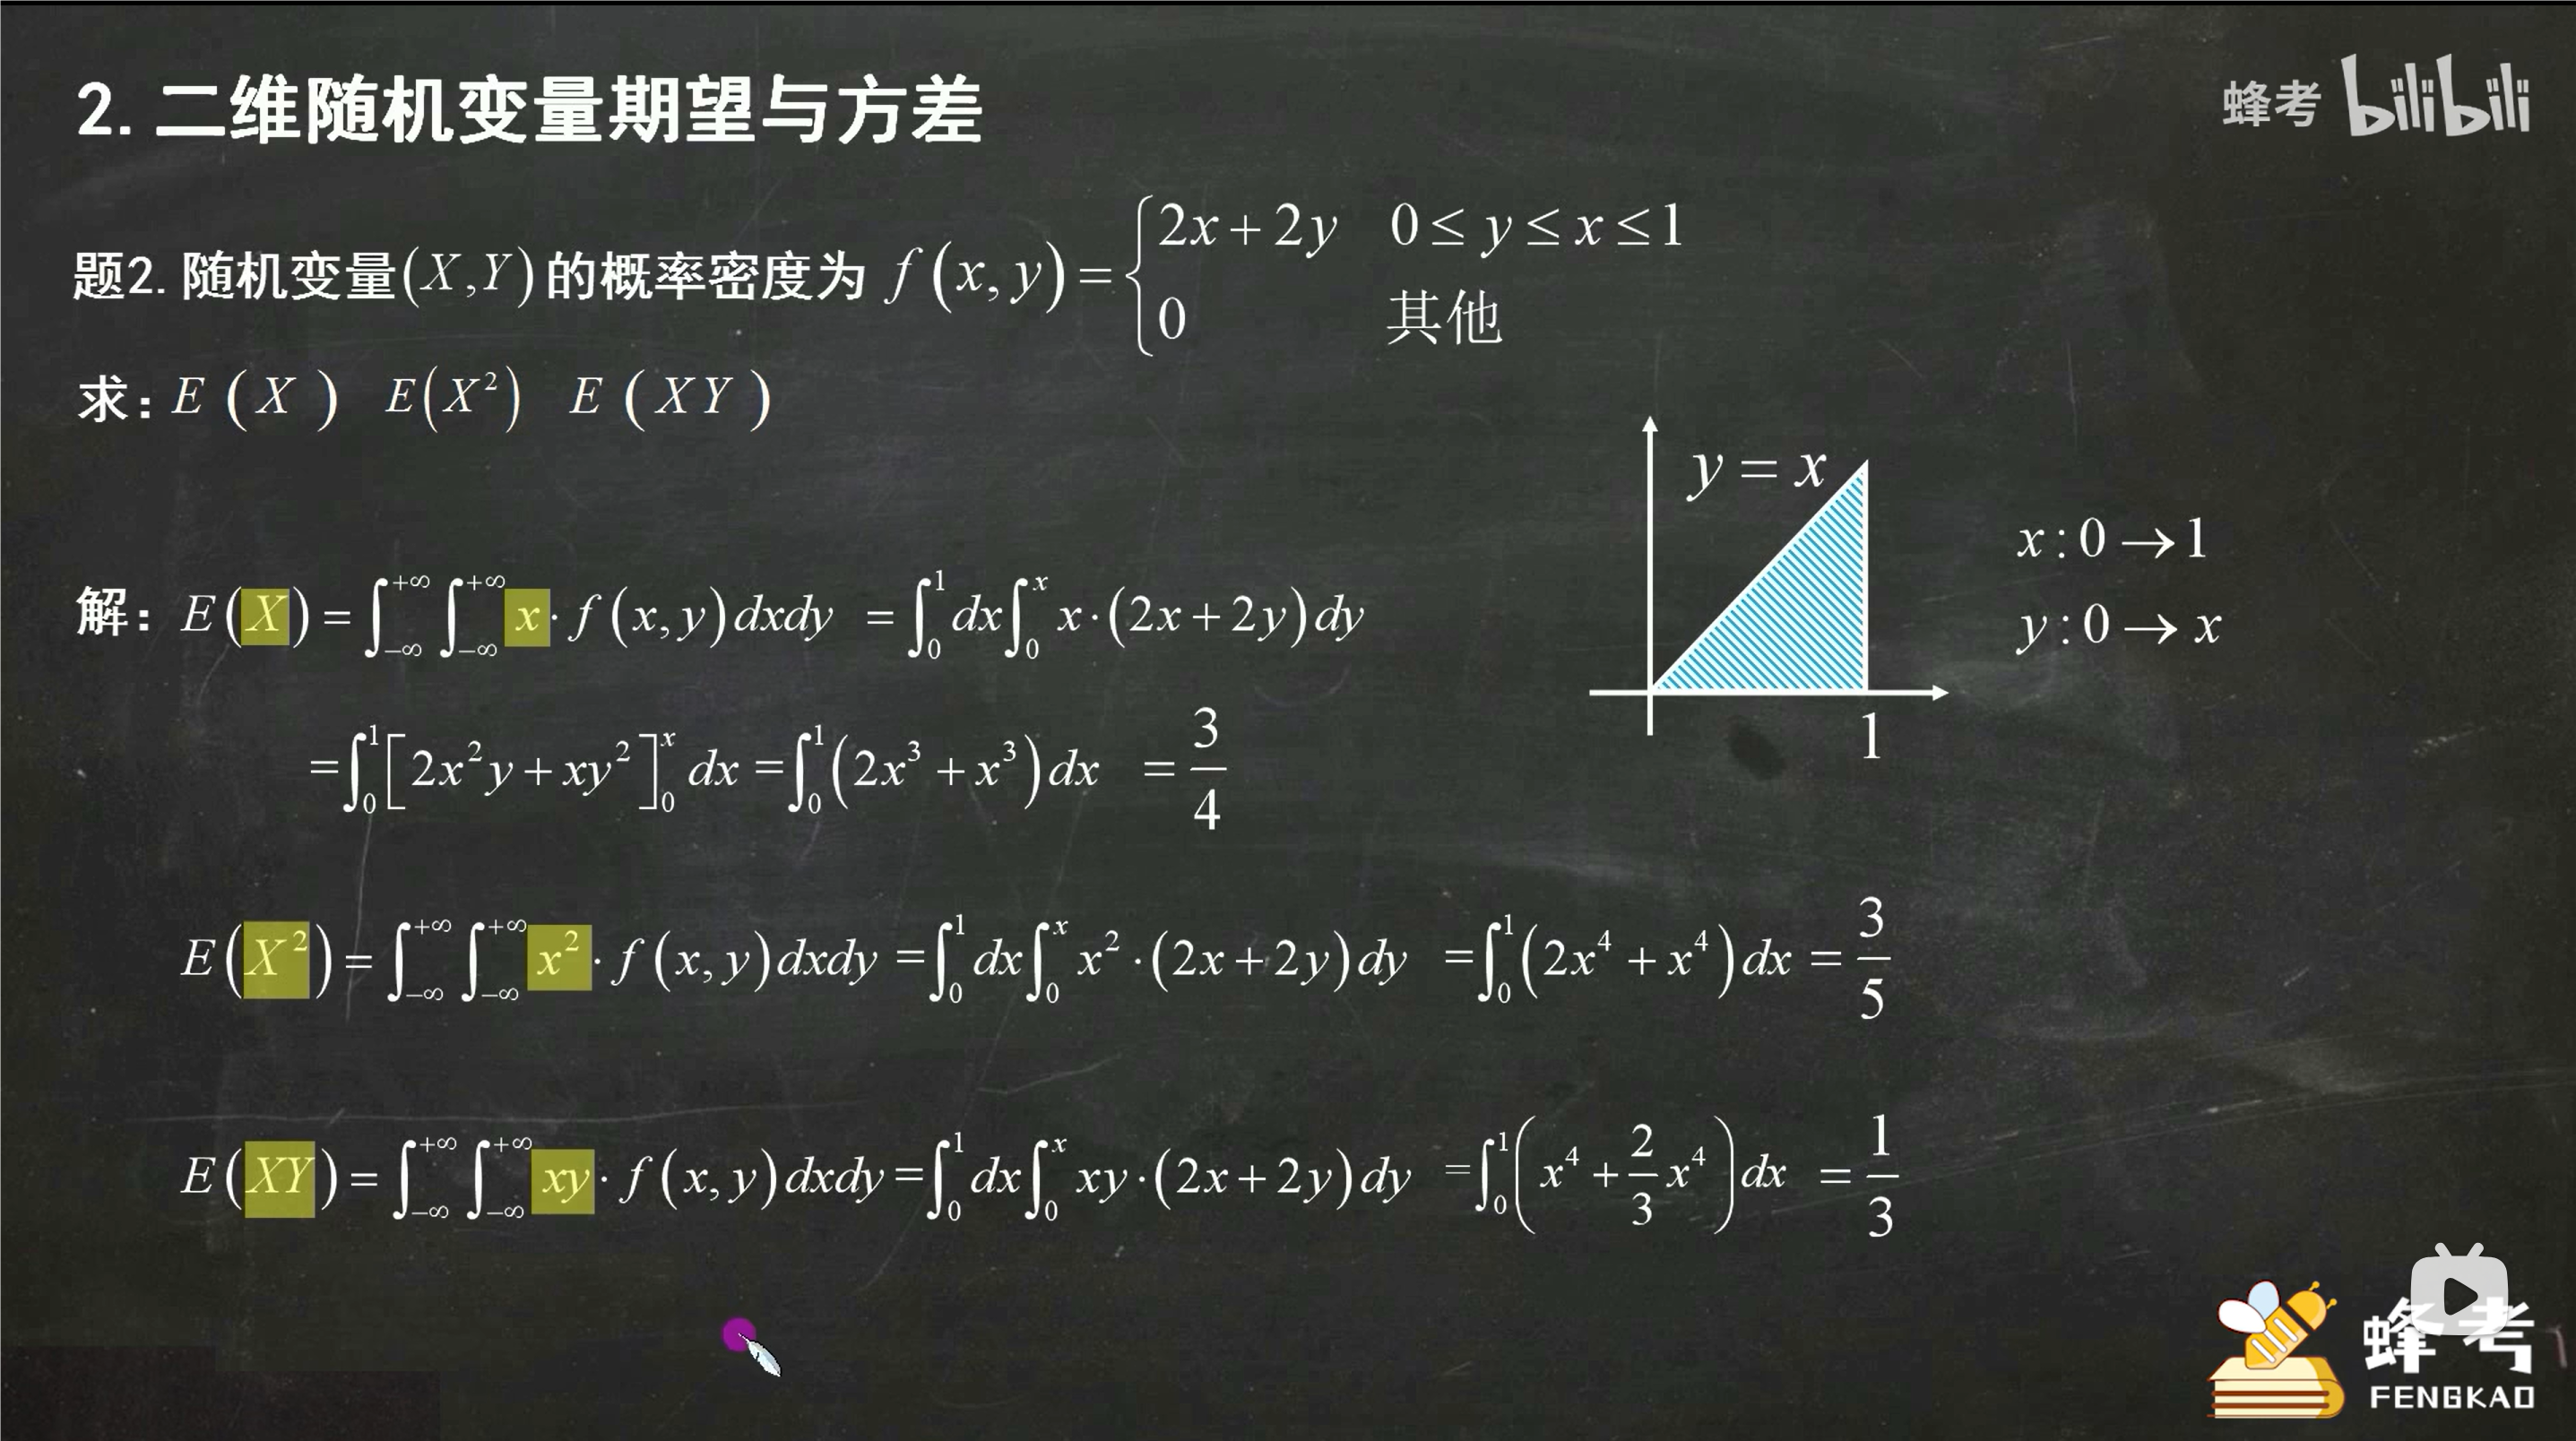 2. 二维随机变量期望与方差
蜂考 bilibili
题2. 随机变量(X,Y)的概率密度为 f(x,y)={2x+2y 0≤y≤x≤1
0 其他
求: E(X) E(X²) E(XY)
y=x
x:0→1
y:0→x
1
解: E(X)=∫_{-∞}^{+∞}∫_{-∞}^{+∞} x·f(x,y)dxdy =∫_0^1 dx∫_0^x x·(2x+2y)dy
=∫_0^1[2x²y+xy²]_0^x dx=∫_0^1(2x³+x³)dx =3/4
E(X²)=∫_{-∞}^{+∞}∫_{-∞}^{+∞} x²·f(x,y)dxdy=∫_0^1 dx∫_0^x x²·(2x+2y)dy =∫_0^1(2x⁴+x⁴)dx=3/5
E(XY)=∫_{-∞}^{+∞}∫_{-∞}^{+∞} xy·f(x,y)dxdy=∫_0^1 dx∫_0^x xy·(2x+2y)dy =∫_0^1(x⁴+2/3x⁴)dx =1/3
蜂考
FENGKAO